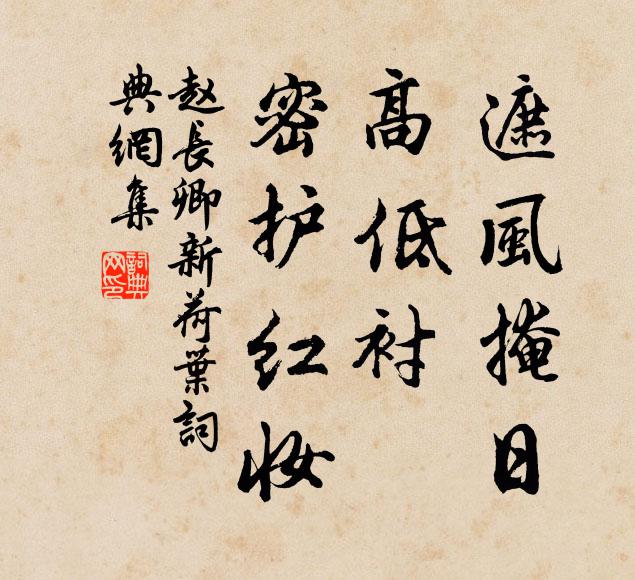 遮風掩日
高低衬
密护红妆
赵長卿新荷葉詞
典網集
詞典网印